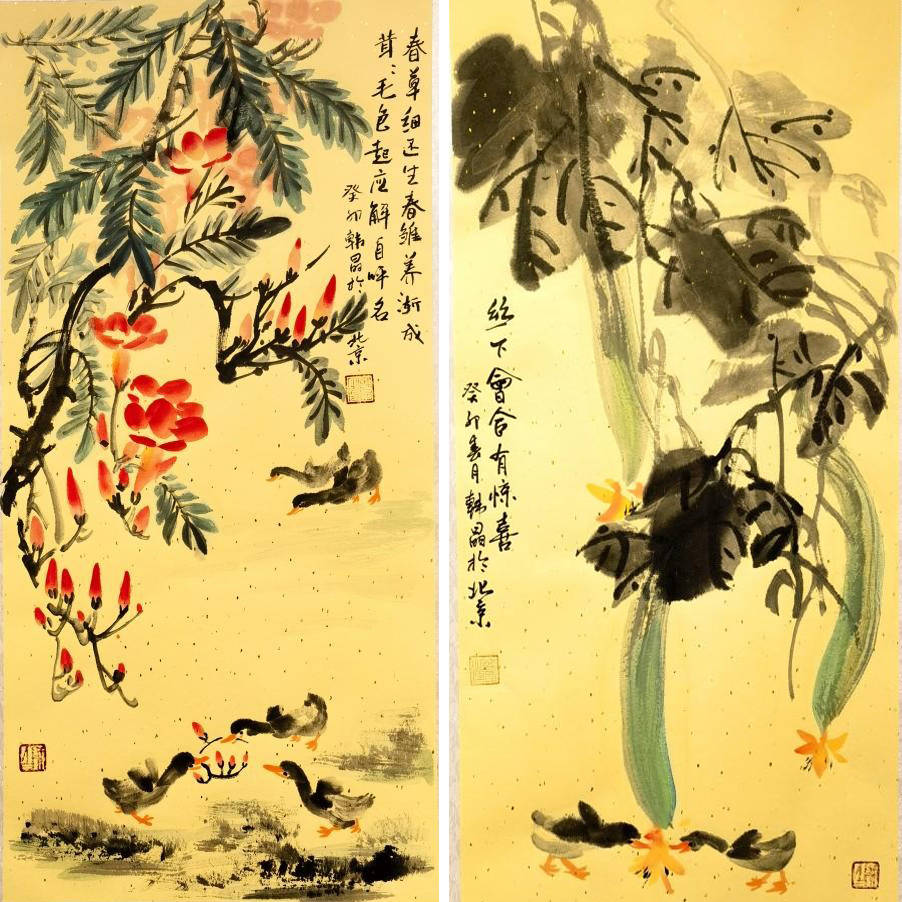 春草细还生春雏养渐成
茸々毛色起应解自呼名
癸卯韩晶於
北京
丝下會合有惊喜
癸卯春月韩晶於北京